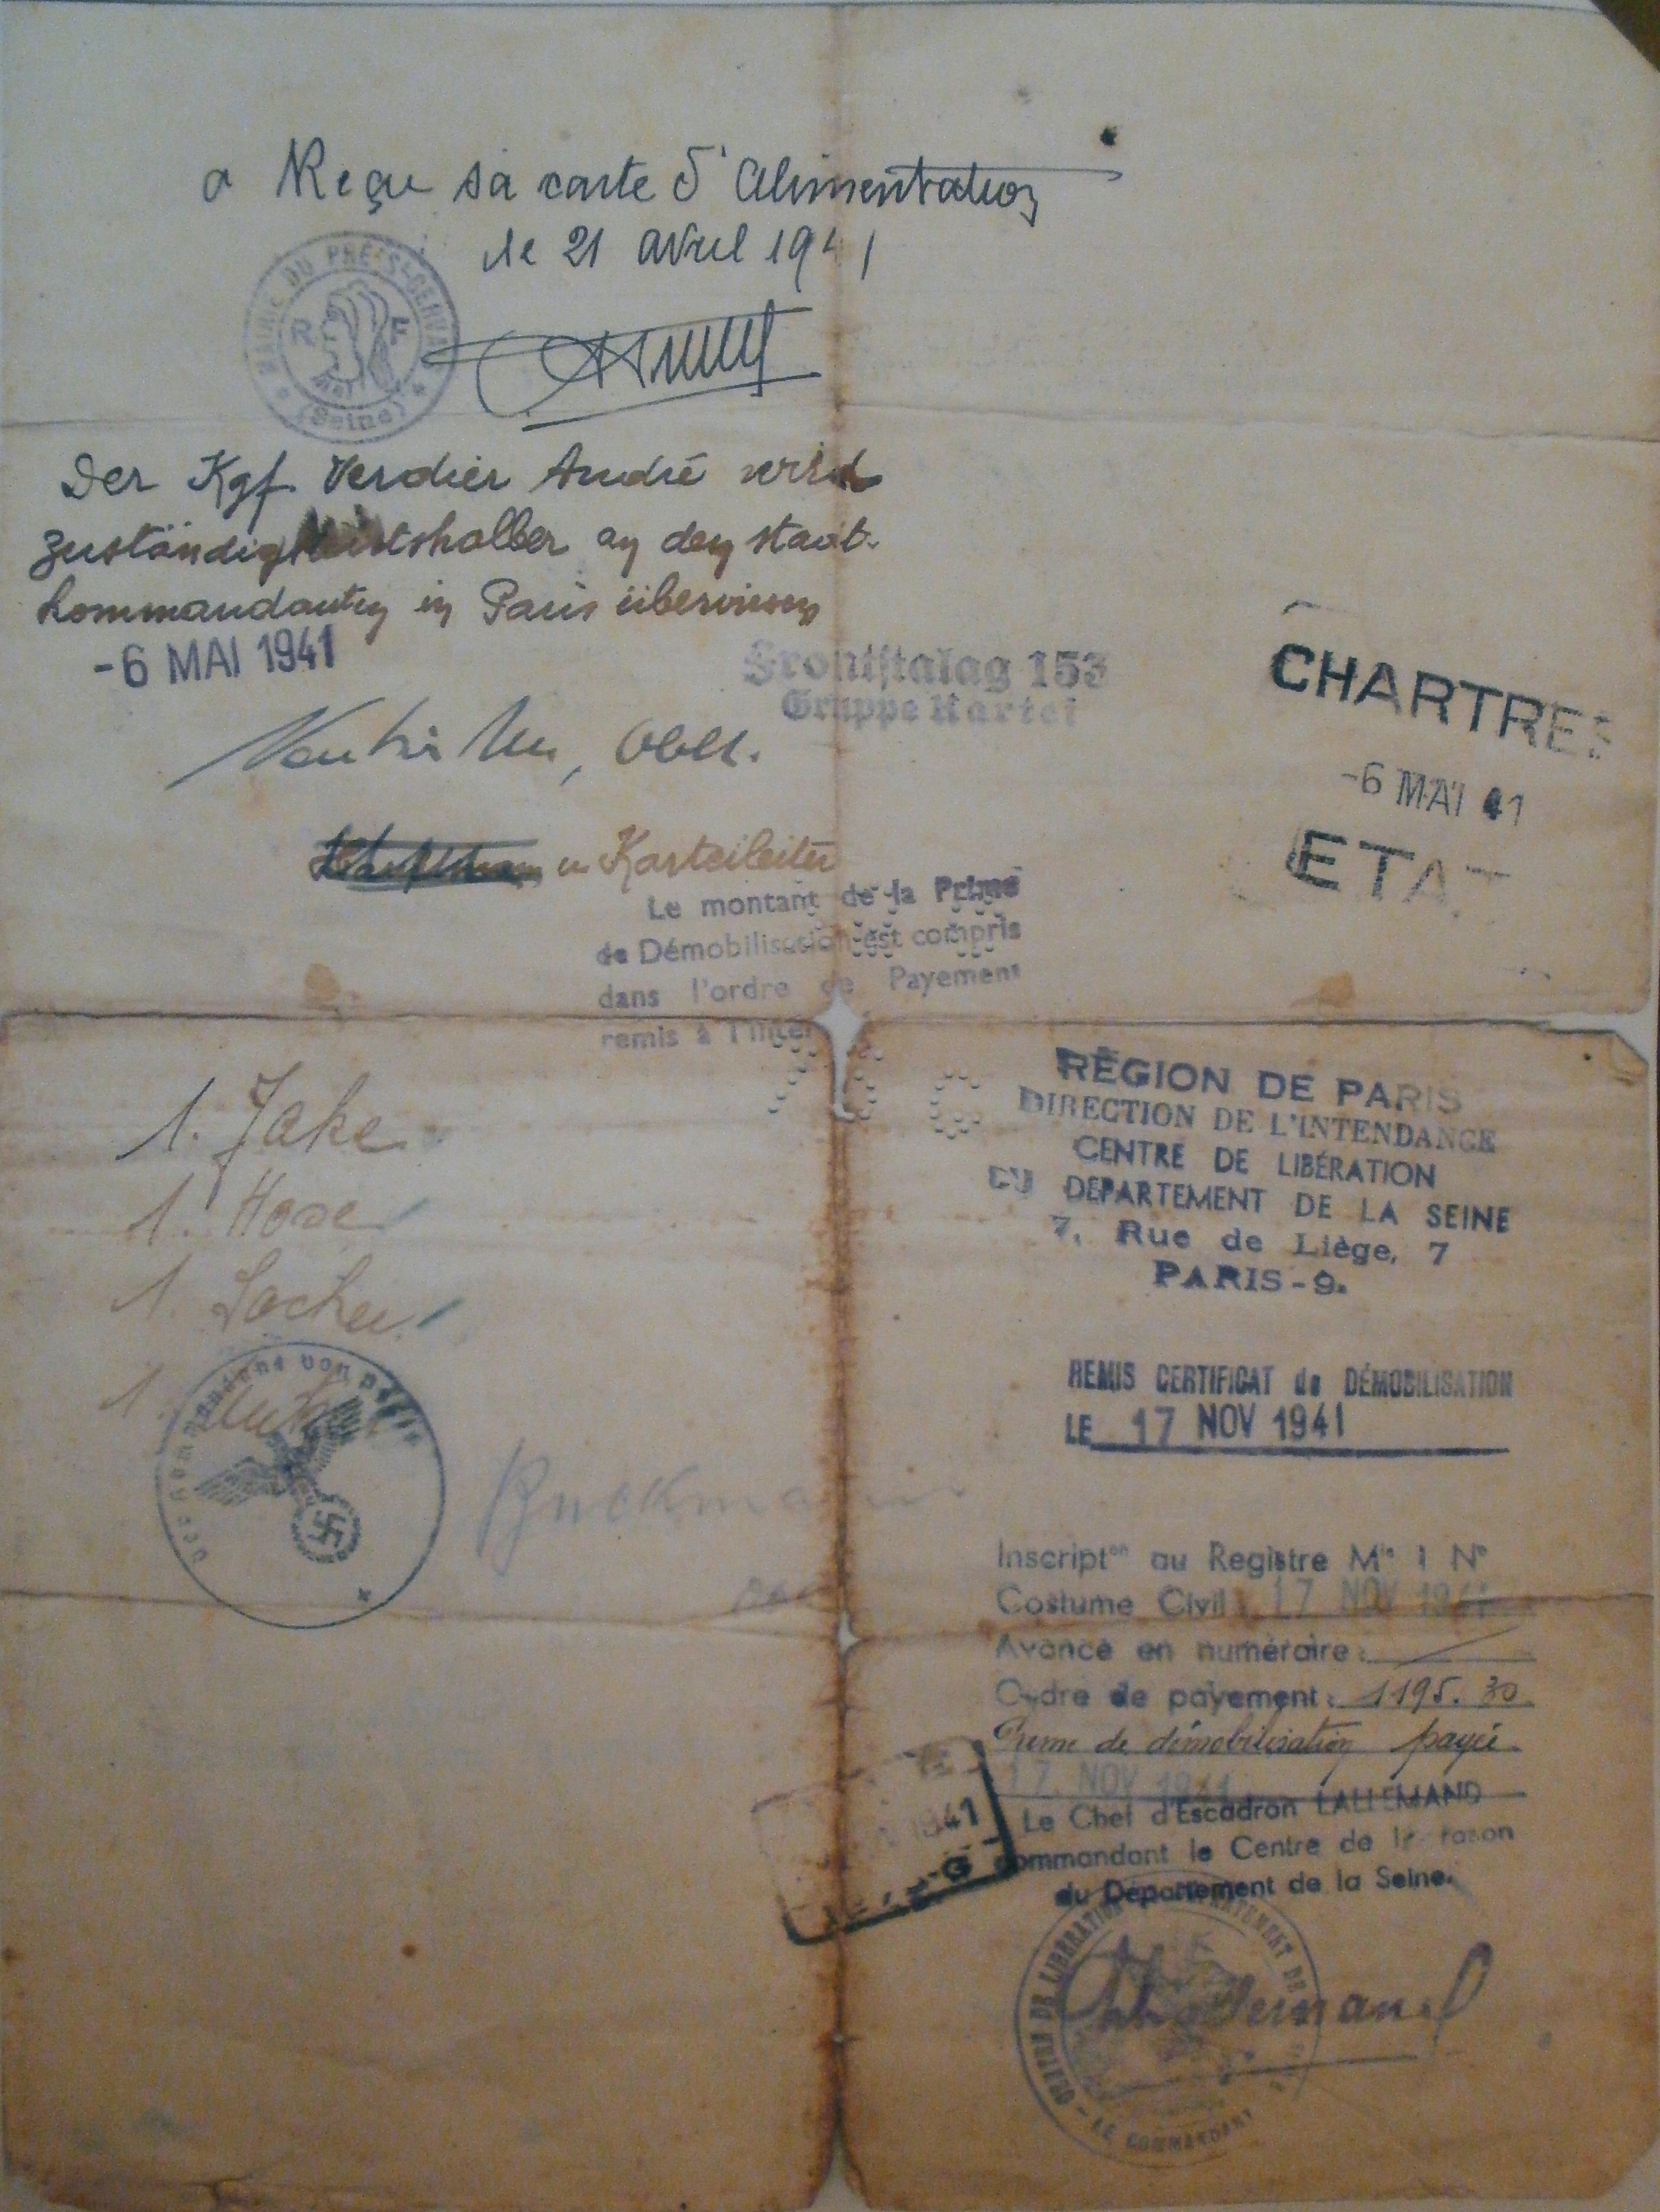 a Reçu sa carte d'Alimentation
le 21 avril 1941
MAIRIE DU PRÉ-St-GERVAIS
R F
(Seine)
Der Kgf. Verdier André wird
zuständigkeitshalber an den stadt-
kommandanten in Paris überwiesen
-6 MAI 1941
Frontstalag 153
Gruppe Kartei
CHARTRES
-6 MAI 41
ETAT
u Karteileiter
Le montant de la Prime
de Démobilisation est compris
dans l'ordre de Payement
remis à l'inter
1. Jake
1. Hose
1. Socken
1.
Der Kommandant von Paris
Buckmann
RÉGION DE PARIS
DIRECTION DE L'INTENDANCE
CENTRE DE LIBÉRATION
DU DÉPARTEMENT DE LA SEINE
7, Rue de Liège, 7
PARIS-9.
REMIS CERTIFICAT de DÉMOBILISATION
LE 17 NOV 1941
Inscript^on au Registre M^le 1 N°
Costume Civil : 17 NOV 1941
Avance en numéraire :
Ordre de payement : 1195.30
Prime de démobilisation payée
17. NOV 1941
1941
Le Chef d'Escadron LALLEMAND
commandant le Centre de Libération
du Département de la Seine.
CENTRE DE LIBÉRATION DU DÉPARTEMENT DE LA SEINE
- LE COMMANDANT
Lallemand